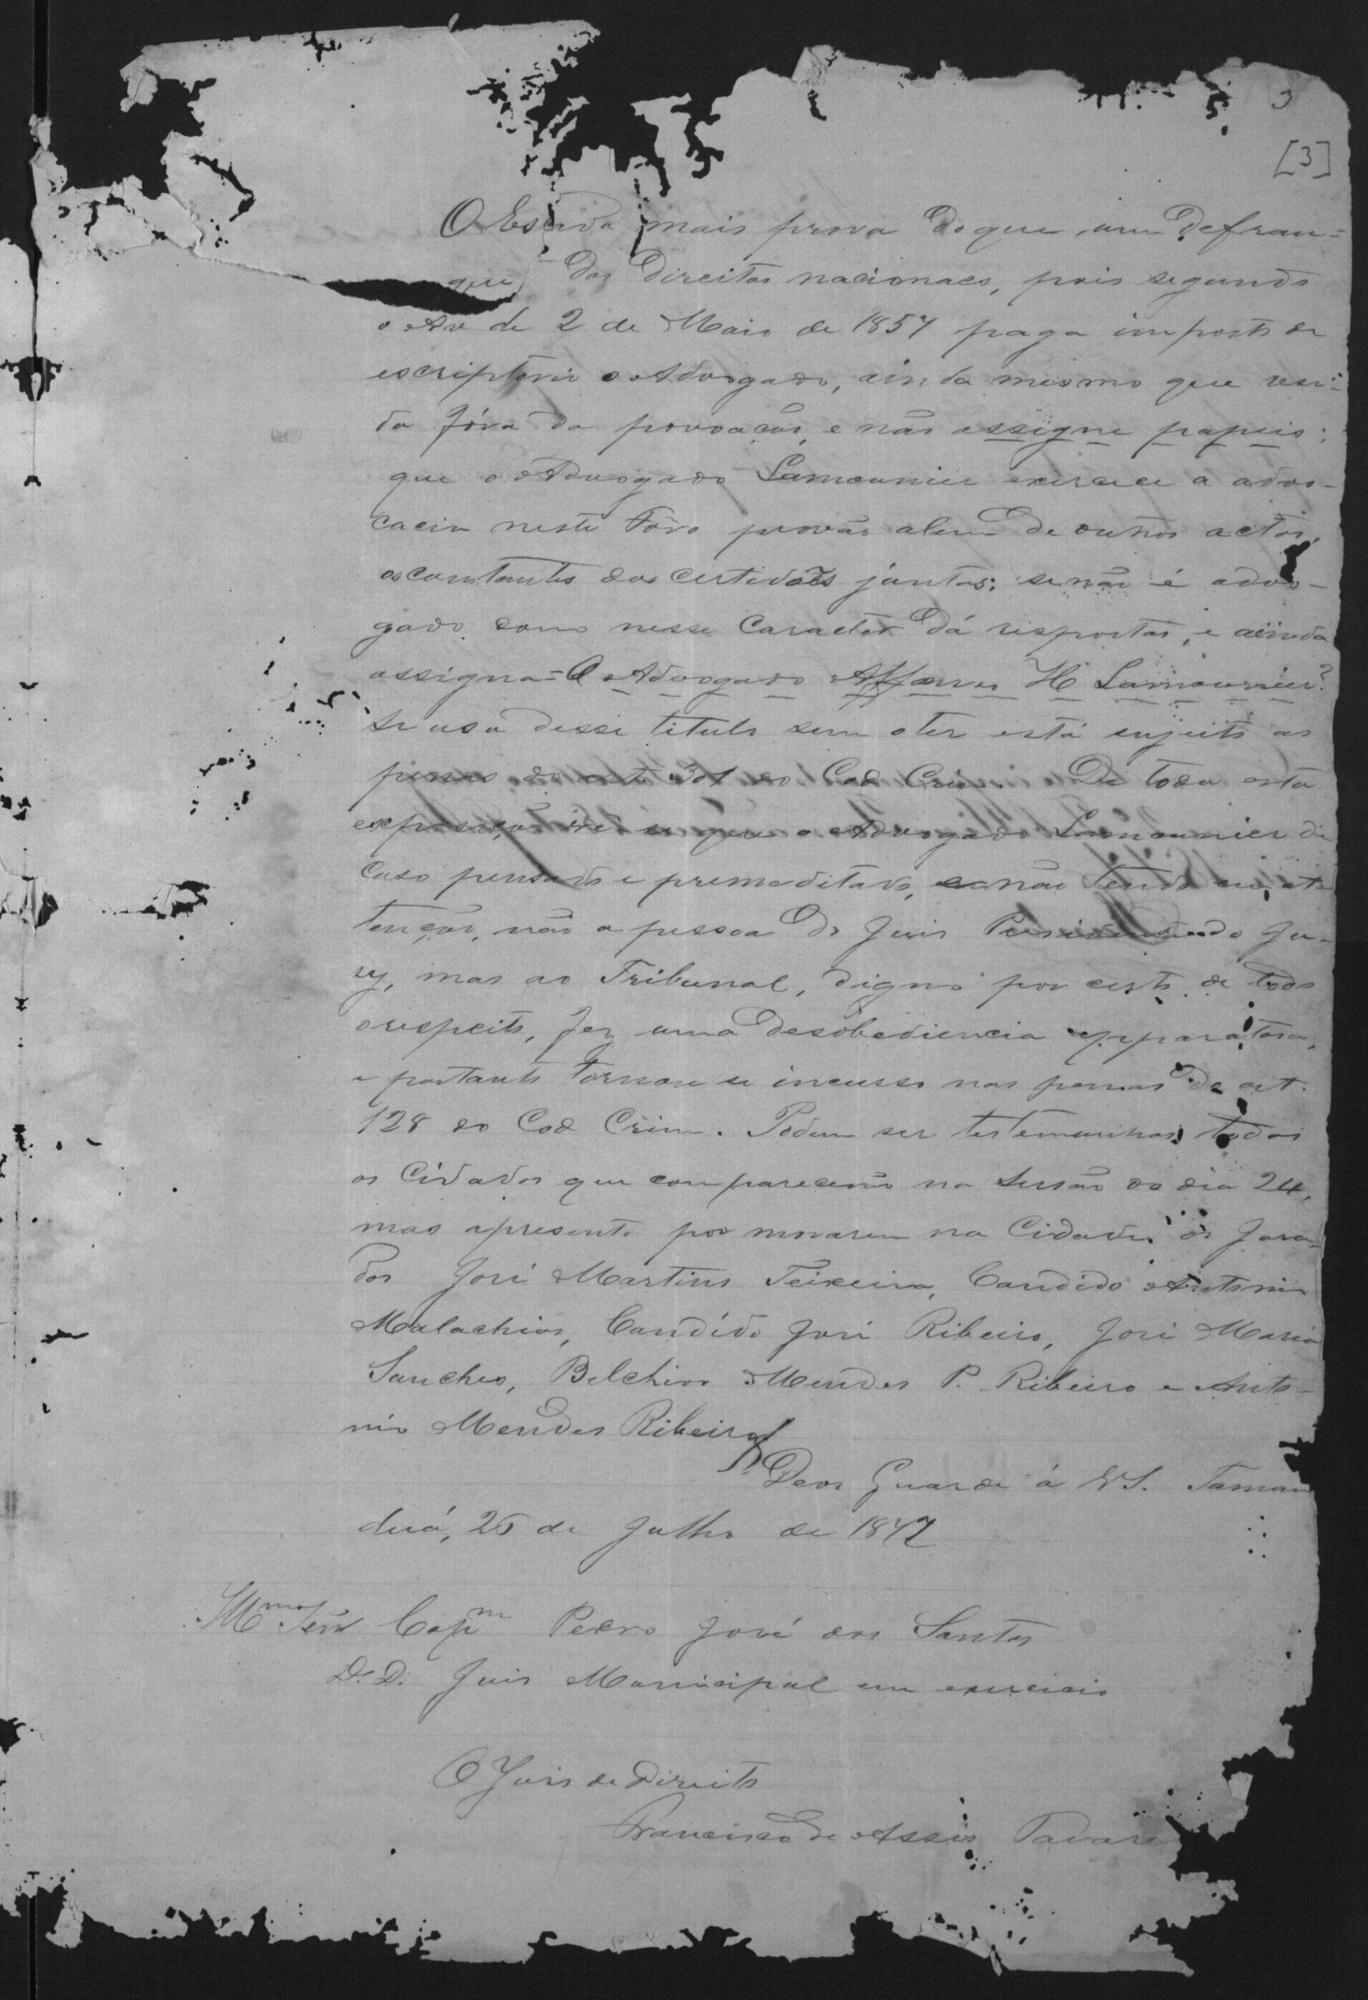 3
[3]
mais prova do que um defrau=
que dos Direitos nacionaes, pois segundo
o Av de 2 de Maio de 1857 paga imposto de
escriptorio o Advogado, ainda mesmo que resi=
da fóra da povoação, e não assigne papeis;
que o Advogado Lamounier exerce a advo-
cacia neste Fôro provão alem de outros actos,
os constantes das certidões juntas; se não é advo-
gado como nesse caracter dá respostas, e ainda
assigna=O Advogado Affonso H Lamounier?
Se usa desse titulo sem o ter está sujeito as
penas do art. 301 do Cod Crim. De toda esta
exposição vê se que o Advogado Lamounier de
caso pensado e premeditado, não tendo em at
tenção, não a pessoa do Juis Presidente do Ju-
ry, mas ao Tribunal, digno por certo de todo
o respeito, fez uma desobediencia apparatosa,
e portanto tornou se incurso nas penas do art.
128 do Cod Crim. Podem ser testemunhas todos
os Cidadãos que comparecerão na Sessão do dia 24,
mas apresento por morarem na Cidade os Jura-
dos José Martins Teixeira, Candido Antonio
Malachias, Candido José Ribeiro, José Maria
Sanches, Belchior Mendes P. Ribeiro e Anto-
nio Mendes Ribeiro
Deos Guarde á VS. Taman
duá, 26 de Julho de 1877
Illmo Senr Capm Pedro José dos Santos
D. D. Juis Municipal em exercicio
O Juis de Direito
Francisco de Assis Tavares